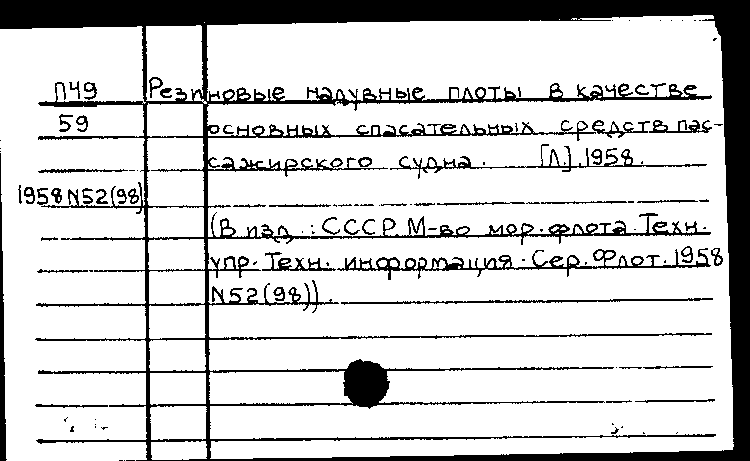 П49 Резиновые надувные плоты в качестве
59 основных спасательных средств пас-
сажирского судна. [Л]. 1958.
1958 N52(98)
(В изд.: СССР. М-во мор. флота. Техн.
упр. Техн. информация. Сер. Флот. 1958
N52(98)).